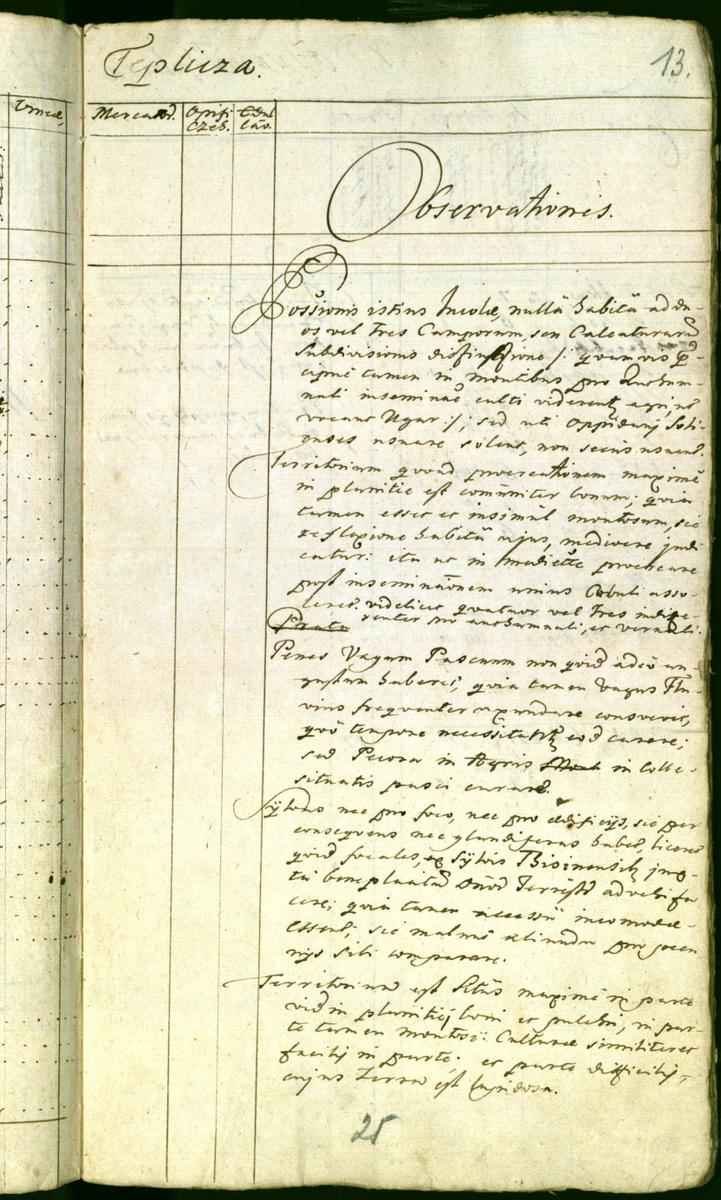 Teplicza.
13.
Mercator.
Opifi
czes.
Observationes.
Possionis istius Incolae, nullâ habitâ ad du-
os vel tres Camporum, seu Calcaturarū
Subdivisionis distinctione /: quamvis
tamen in montibus pro Auctum-
nali inseminae culti viderent agri, ut
vocant Ugar :/ sed uti Oppidani Soti-
enses usuare solent, non secus usuant.
Territorium quoad procreationem maxime
in planitie est comuniter bonum; quia
tamen esset et insimul montosum, sic
reflexione habitâ ujus, mediocre judi
catur: ita ut in medietate procreare
post inseminationem unius Cubuli asso-
leret, videlicet quatuor vel tres indiffe-
renter pro auctumnali, et vernali.
Penes Vagum Pascuum non quid adeo an
gustum haberet, quia tamen Vagus Flu-
vius frequenter exundare consvevit,
quô tempore necessitant eod carere;
sed Pecora in Agris in Colle-
situatis pasci curant.
Sylvas nec pro foco, nec pro edificijs, sic per
consequens nec glandiferas habet, licet
quid focales, ex Sylvis Bisinensib jux-
ta beneplacitū Dnor Terrestr advehi fa
cere; quia tamen accessu incomodae
essent, sic malunt aliunde pro pecu
nijs sibi comparare.
Territorium est Sitûs maxime in parte
vid in planitiej boni et pulchri, in par-
te tamen montosi: Culturae similiter et
facilij in parte; et parte difficilij,
cujus terra est lapidosa.
25